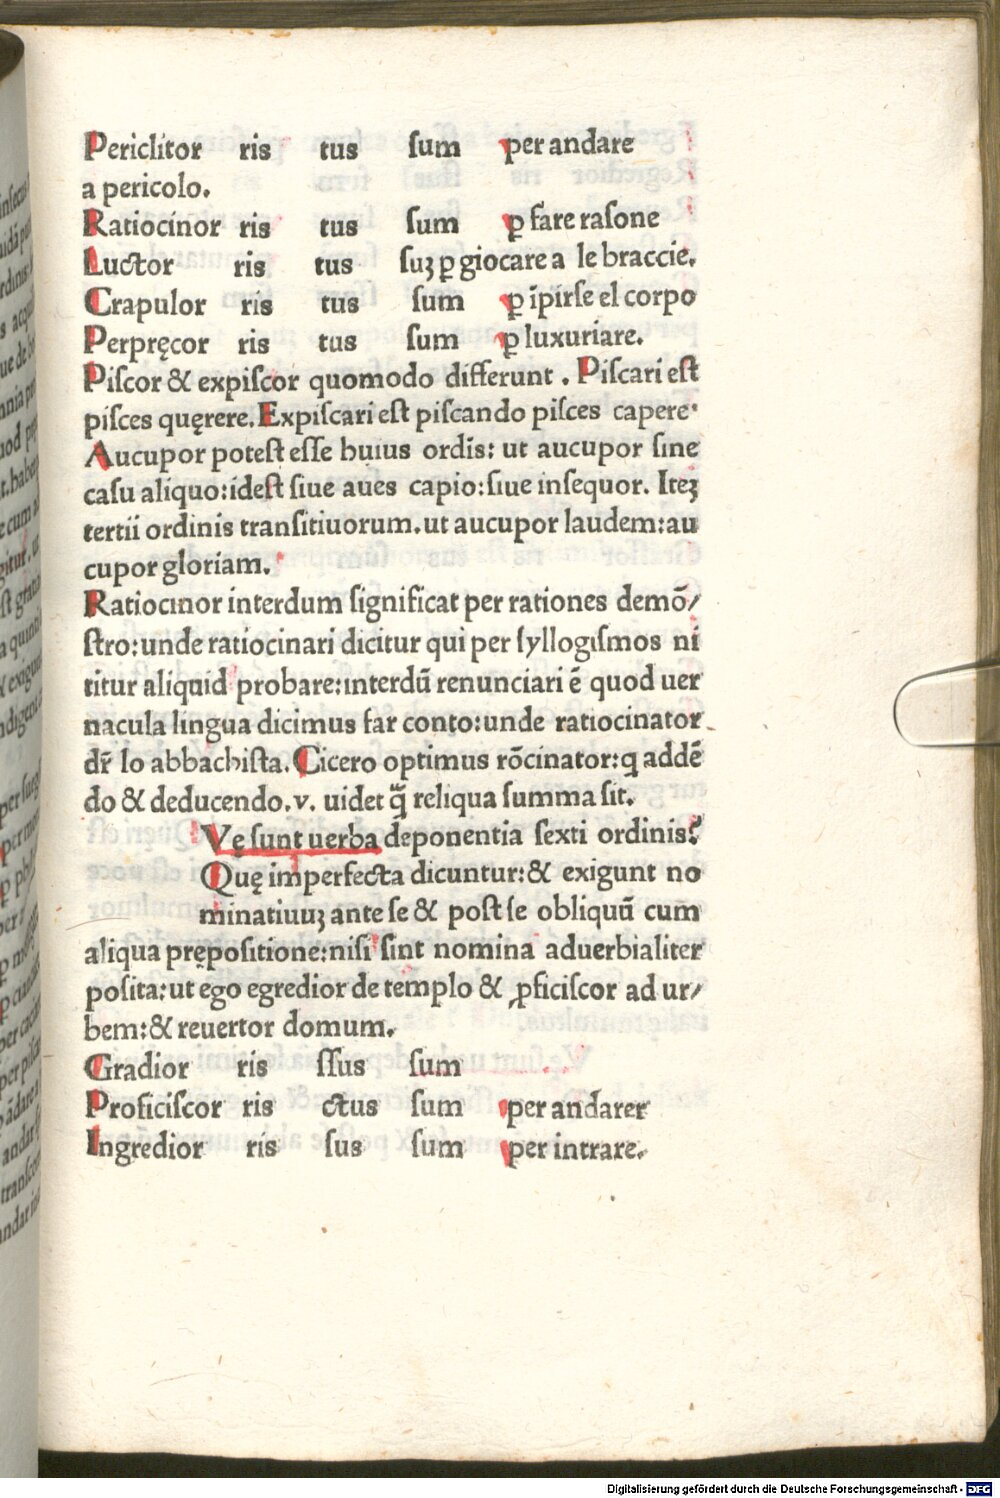 Periclitor ris tus ſum per andare
a pericolo.
Ratiocinor ris tus ſum ꝑ fare raſone
Luctor ris tus ſuꝫ ꝑ giocare a le braccie.
Crapulor ris tus ſum ꝑ īpirſe el corpo
Perpręcor ris tus ſum ꝑ luxuriare.
Piſcor & expiſcor quomodo differunt . Piſcari eſt
piſces quęrere. Expiſcari eſt piſcando piſces capere·
Aucupor poteſt eſſe huius ordis: ut aucupor ſine
caſu aliquo: ideſt ſiue aues capio: ſiue inſequor. Iteꝫ
tertii ordinis tranſitiuorum. ut aucupor laudem: au
cupor gloriam.
Ratiocinor interdum ſignificat per rationes demō/
ſtro: unde ratiocinari dicitur qui per ſyllogiſmos ni
titur aliquid probare: interdū renunciari ē quod uer
nacula lingua dicimus far conto: unde ratiocinator
dr̄ lo abbachiſta. Cicero optimus rōcinator: q addē
do & deducendo. v. uidet q̄ reliqua ſumma ſit.
Vę ſunt uerba deponentia ſexti ordinis?
Quę imperfecta dicuntur: & exigunt no
minatiuuꝫ ante ſe & poſt ſe obliquū cum
aliqua prępoſitione: niſi ſint nomina aduerbialiter
poſita: ut ego egredior de templo & ꝓficiſcor ad ur/
bem: & reuertor domum.
Gradior ris ſſus ſum
Proficiſcor ris ctus ſum per andarer
Ingredior ris ſus ſum per intrare.
Digitalisierung gefördert durch die Deutsche Forschungsgemeinschaft - DFG